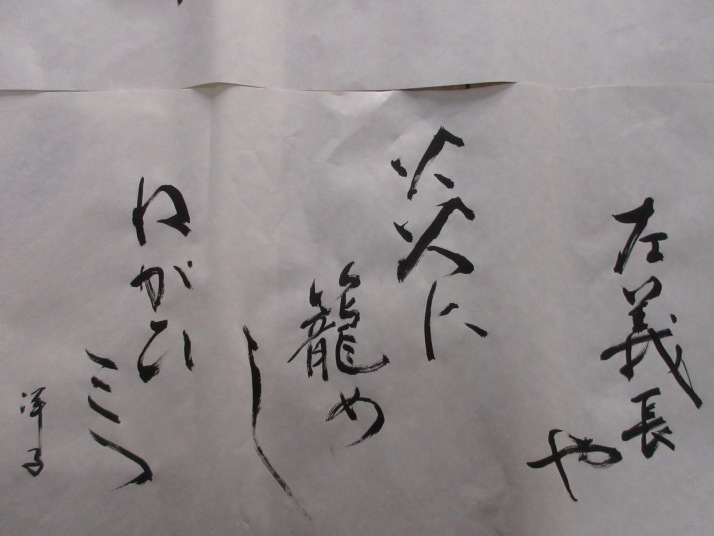 左義長
や
炎に
籠め
し
ねがひ
三つ
洋子